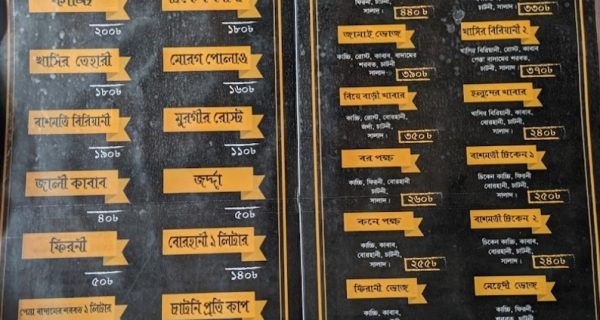 কাচ্চি
২০০৳
খাসির তেহারী
১৮০৳
বাশমতি বিরিয়ানী
১৯০৳
জালী কাবাব
৪০৳
ফিরনী
৫০৳
পেস্তা বাদামের শরবত ১ লিটার
১৮০৳
মোরগ পোলাও
১৬০৳
মুরগীর রোস্ট
১১০৳
জর্দ্দা
৫০৳
বোরহানী ১ লিটার
১৪০৳
চাটনি প্রতি কাপ
চাটনী,
সালাদ।
৪৪০৳
জামাই ভোজ
কাচ্চি, রোস্ট, কাবাব, বাদামের
শরবত, চাটনী,
সালাদ।
৩৯০৳
বিয়ে বাড়ী খাবার
কাচ্চি, রোস্ট, কাবাব, বোরহানী,
চাটনী,
সালাদ।
৩৫০৳
বর পক্ষ
কাচ্চি, ফিরনী, বোরহানী
চাটনী,
সালাদ।
২৬০৳
কনে পক্ষ
কাচ্চি, কাবাব,
বোরহানী, চাটনী,
সালাদ।
২৫৫৳
ফিরনী ভোজ
কাচ্চি, কাবাব,
ফিরনী, চাটনী,
চাটনী,
সালাদ।
৩৩০৳
খাসির বিরিয়ানী ২
খাসির বিরিয়ানী, রোস্ট, কাবাব
পেস্তা বাদামের শরবত,
চাটনী, সালাদ।
৩৭০৳
হলুদের খাবার
খাসির বিরিয়ানী, কাবাব,
বোরহানী, চাটনী,
সালাদ।
২৪০৳
বাশমতী চিকেন ১
চিকেন কাচ্চি, ফিরনী
বোরহানী, চাটনী,
সালাদ।
২৫০৳
বাশমতী চিকেন ২
চিকেন কাচ্চি, কাবাব,
বোরহানী, চাটনী,
সালাদ।
২৪০৳
মেহেদী ভোজ
কাচ্চি, কাবাব,